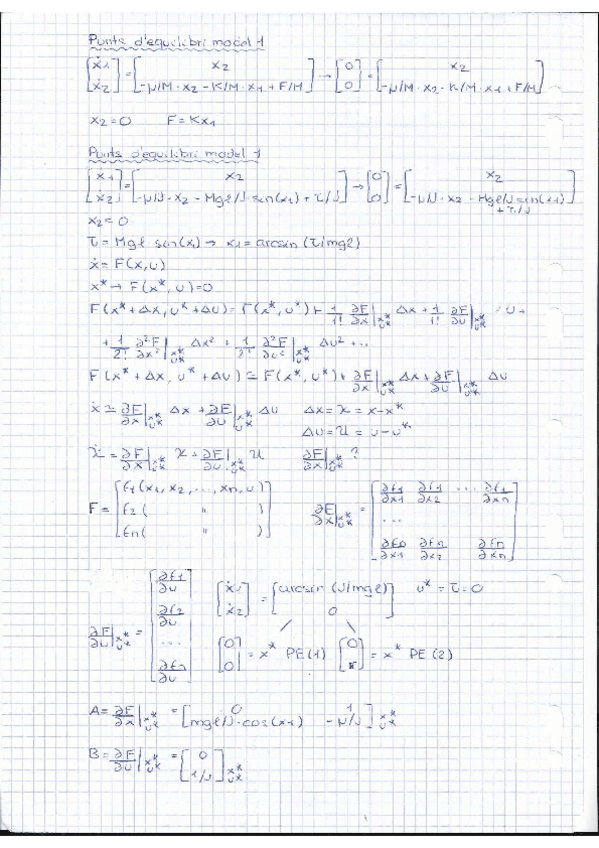 Punts d'equilibri model 1
[ẋ1 ẋ2] = [x2 -μ/M·x2 - K/M·x1 + F/M] → [0 0] = [x2 -μ/M·x2 - K/M·x1 + F/M]
x2=0 F=Kx1
Punts d'equilibri model 1
[ẋ1 ẋ2] = [x2 -μ/J·x2 - Mgℓ/J·sin(x1) + τ/J] → [0 0] = [x2 -μ/J·x2 - Mgℓ/J sin(x1) + τ/J]
x2=0
τ = Mgℓ sin(x1) → x1 = arcsin(τ/mgℓ)
ẋ = F(x,u)
x* → F(x*,u)=0
F(x*+Δx, u*+Δu) = F(x*,u*) + 1/1! ∂F/∂x|x* u* Δx + 1/1! ∂F/∂u|x* u* · u +
+ 1/2! ∂²F/∂x²|x* u* Δx² + 1/2! ∂²F/∂u²|x* u* Δu² + ...
F(x*+Δx, u*+Δu) ≃ F(x*,u*) + ∂F/∂x|x* u* Δx + ∂F/∂u|x* u* Δu
ẋ ≃ ∂F/∂x|x* u* Δx + ∂F/∂u|x* u* Δu Δx = X = x-x*
Δu = U = u-u*
Ẋ = ∂F/∂x|x* u* X + ∂F/∂u|x* u* U ∂F/∂x|x* u* ?
F = [f1(x1, x2, ..., xn, u) f2( " ) fn( " )] ∂F/∂x|x* u* = [∂f1/∂x1 ∂f1/∂x2 ... ∂f1/∂xn ... ∂fn/∂x1 ∂fn/∂x2 ∂fn/∂xn]
∂F/∂u|x* u* = [∂f1/∂u ∂f2/∂u ... ∂fn/∂u] [ẋ1 ẋ2] = [arcsin(J/mgℓ) 0] u* = τ = 0
[0 0] = x* PE(1) [0 π] = x* PE(2)
A = ∂F/∂x|x* u* = [0 1 mgℓ/J·cos(x1) -μ/J] x* u*
B = ∂F/∂u|x* u* = [0 1/J] x* u*